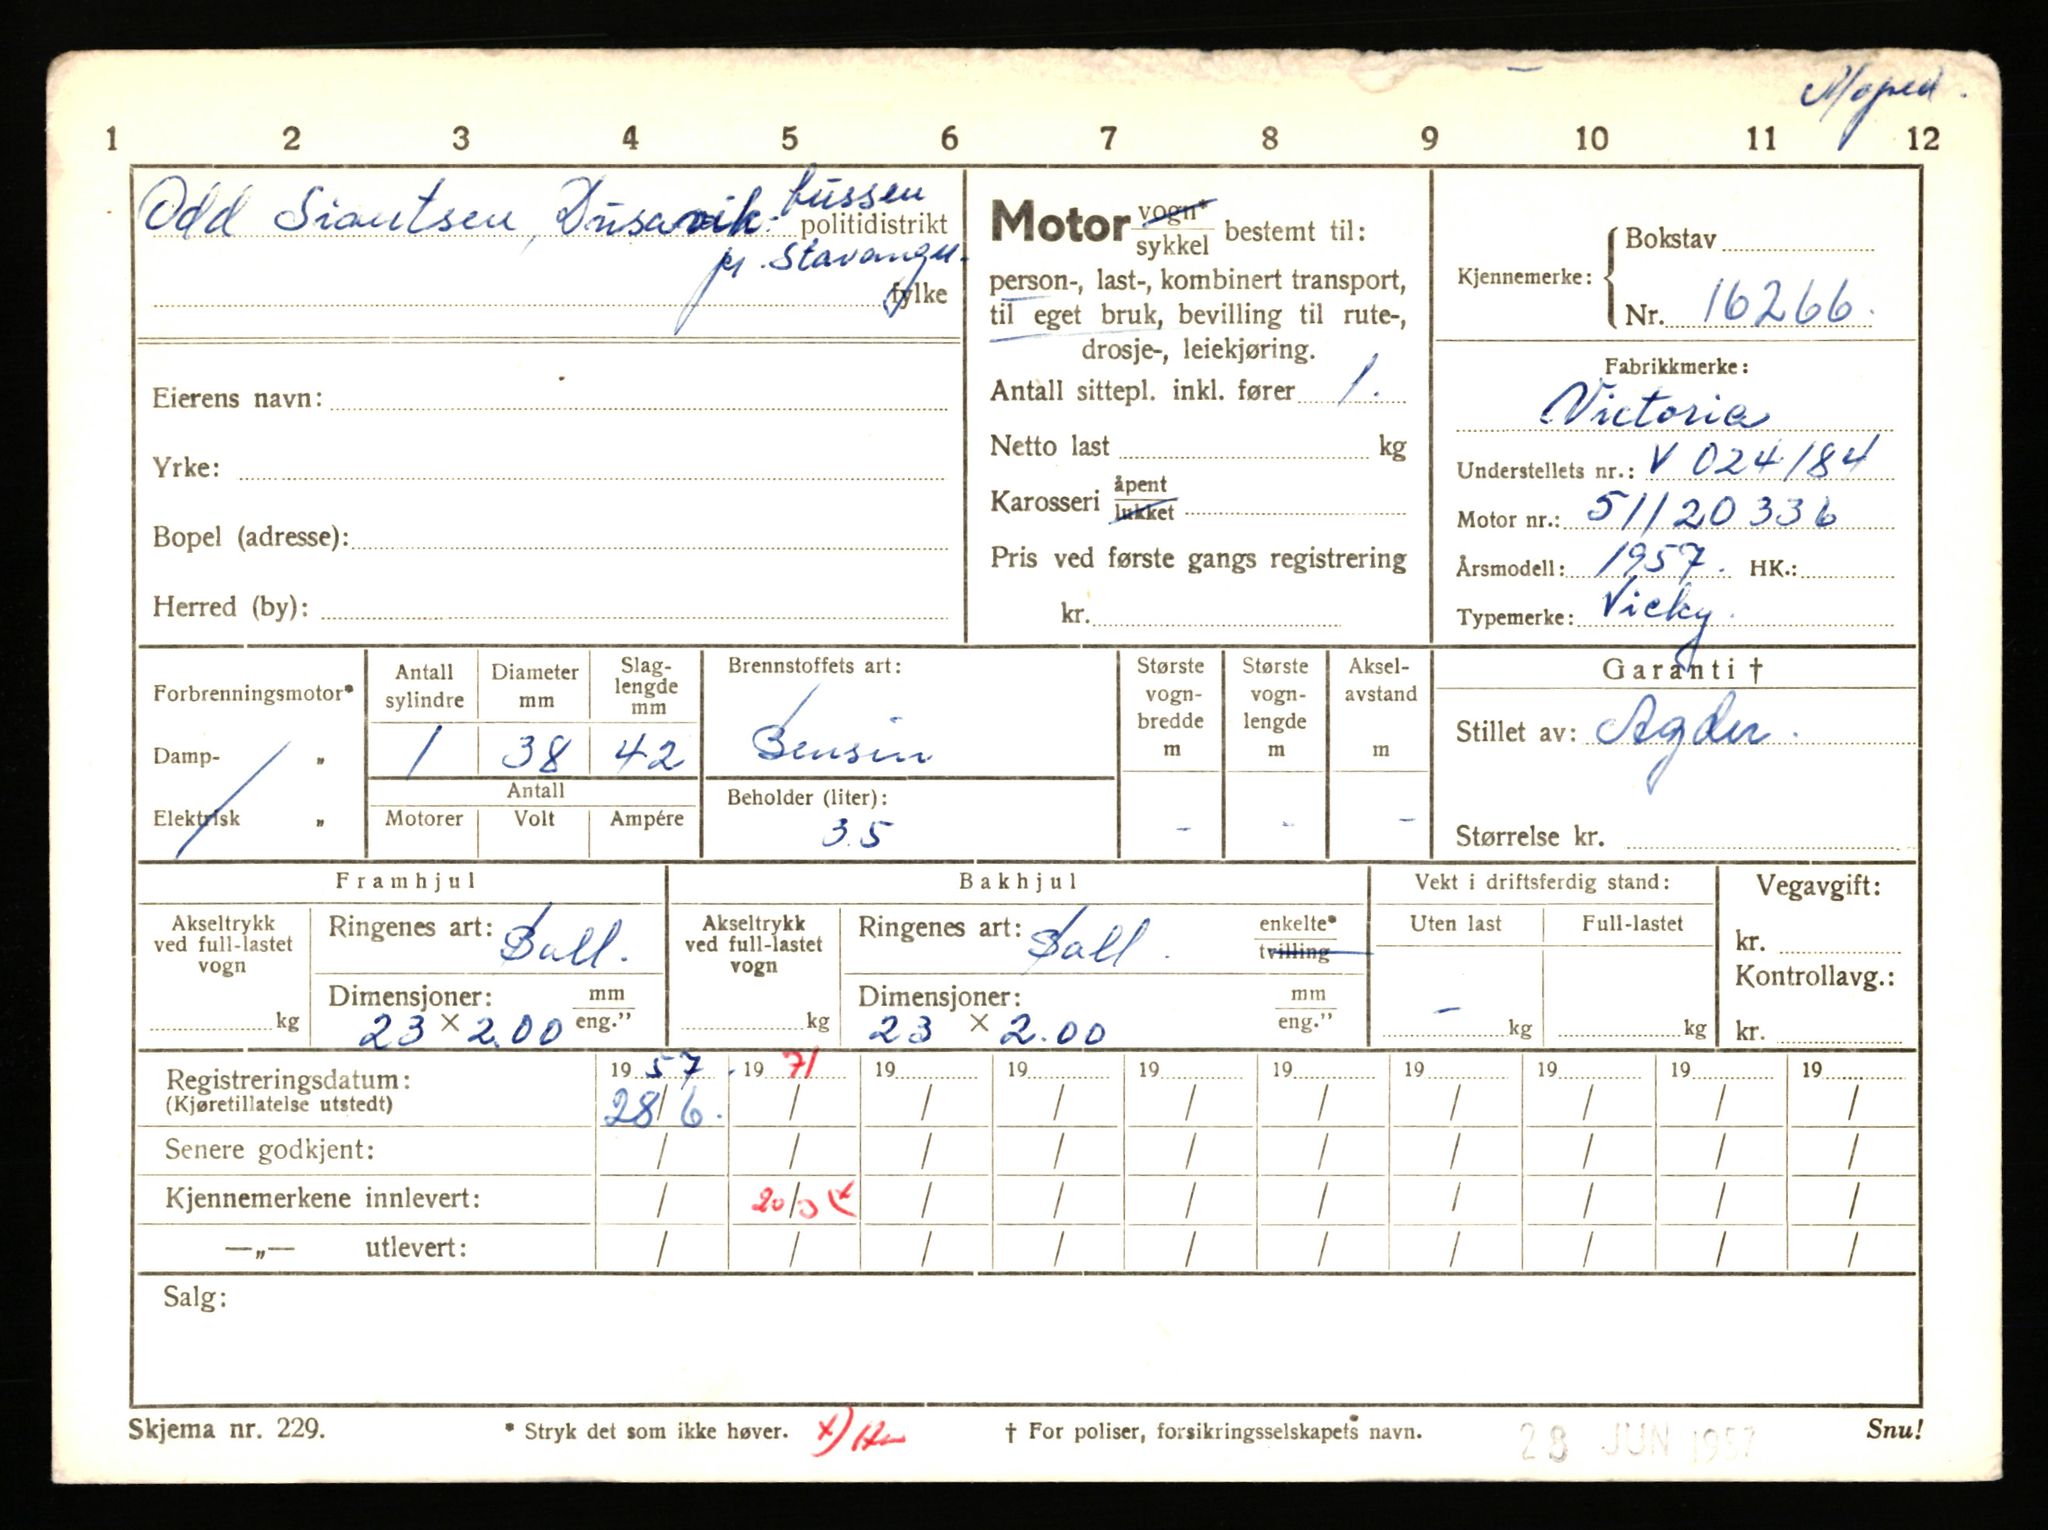 Moped.
1 2 3 4 5 6 7 8 9 10 11 12
Odd Siautsen, Dusavik bussen politidistrikt
pr. Stavanger. fylke
Eierens navn:
Yrke:
Bopel (adresse):
Herred (by):
Motor vogn* sykkel bestemt til:
person-, last-, kombinert transport,
til eget bruk, bevilling til rute-,
drosje-, leiekjøring.
Antall sittepl. inkl. fører 1.
Netto last kg
Karosseri åpent lukket
Pris ved første gangs registrering
kr.
Kjennemerke: Bokstav
Nr. 16266.
Fabrikkmerke:
Victoria
Understellets nr.: V 024184
Motor nr.: 51120336
Årsmodell: 1957. HK.:
Typemerke: Vicky.
Forbrenningsmotor*
Damp- „
Elektrisk „
Antall sylindre 1
Diameter mm 38
Slag-
lengde
mm 42
Antall
Motorer Volt Ampére
Brennstoffets art:
Bensin
Beholder (liter):
3.5
Største
vogn-
bredde
m
-
Største
vogn-
lengde
m
-
Aksel-
avstand
m
-
Garanti †
Stillet av: Agder.
Størrelse kr.
Framhjul
Akseltrykk
ved full-lastet
vogn
kg
Ringenes art: Ball.
Dimensjoner: mm
23 × 2.00 eng."
Bakhjul
Akseltrykk
ved full-lastet
vogn
kg
Ringenes art: Ball. enkelte*
tvilling
Dimensjoner: mm
23 × 2.00 eng."
Vekt i driftsferdig stand:
Uten last Full-lastet
- kg kg
Vegavgift:
kr.
Kontrollavg.:
kr.
Registreringsdatum: 1957 1971 19 19 19 19 19 19 19 19
(Kjøretillatelse utstedt) 28/6. / / / / / / / / /
Senere godkjent: / / / / / / / / / /
Kjennemerkene innlevert: / 20/3 x / / / / / / / /
—„— utlevert: / / / / / / / / / /
Salg:
Skjema nr. 229. * Stryk det som ikke høver. x) † For poliser, forsikringsselskapets navn. 28 JUN 1957 Snu!